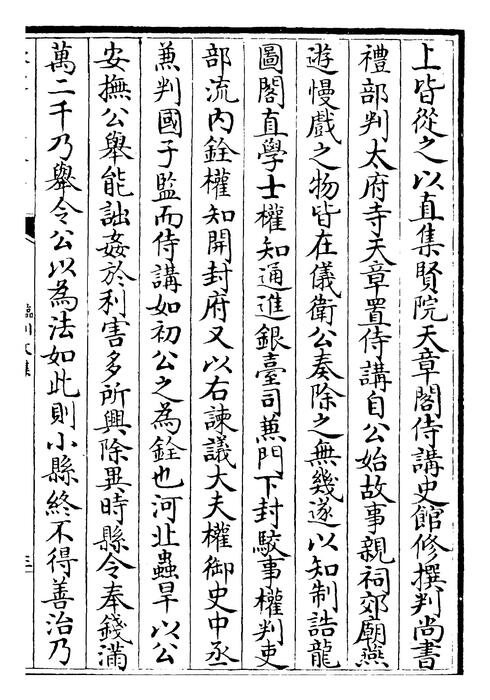 上皆從之以直集賢院天章閣侍講史館修撰判尚書
禮部判太府寺天章置侍講自公始故事親祠郊廟燕
遊慢戲之物皆在儀衛公奏除之無幾遂以知制誥龍
圖閣直學士權知通進銀臺司蒹門下封駮事權判吏
部流內銓權知開封府又以右諫議大夫權御史中丞
蒹判國子監而侍講如初公之為銓也河北蟲旱以公
安撫公舉能詘姦於利害多所興除異時縣令奉錢滿
萬二千乃舉令公以為法如此則小縣終不得善治乃
臨川文集
三